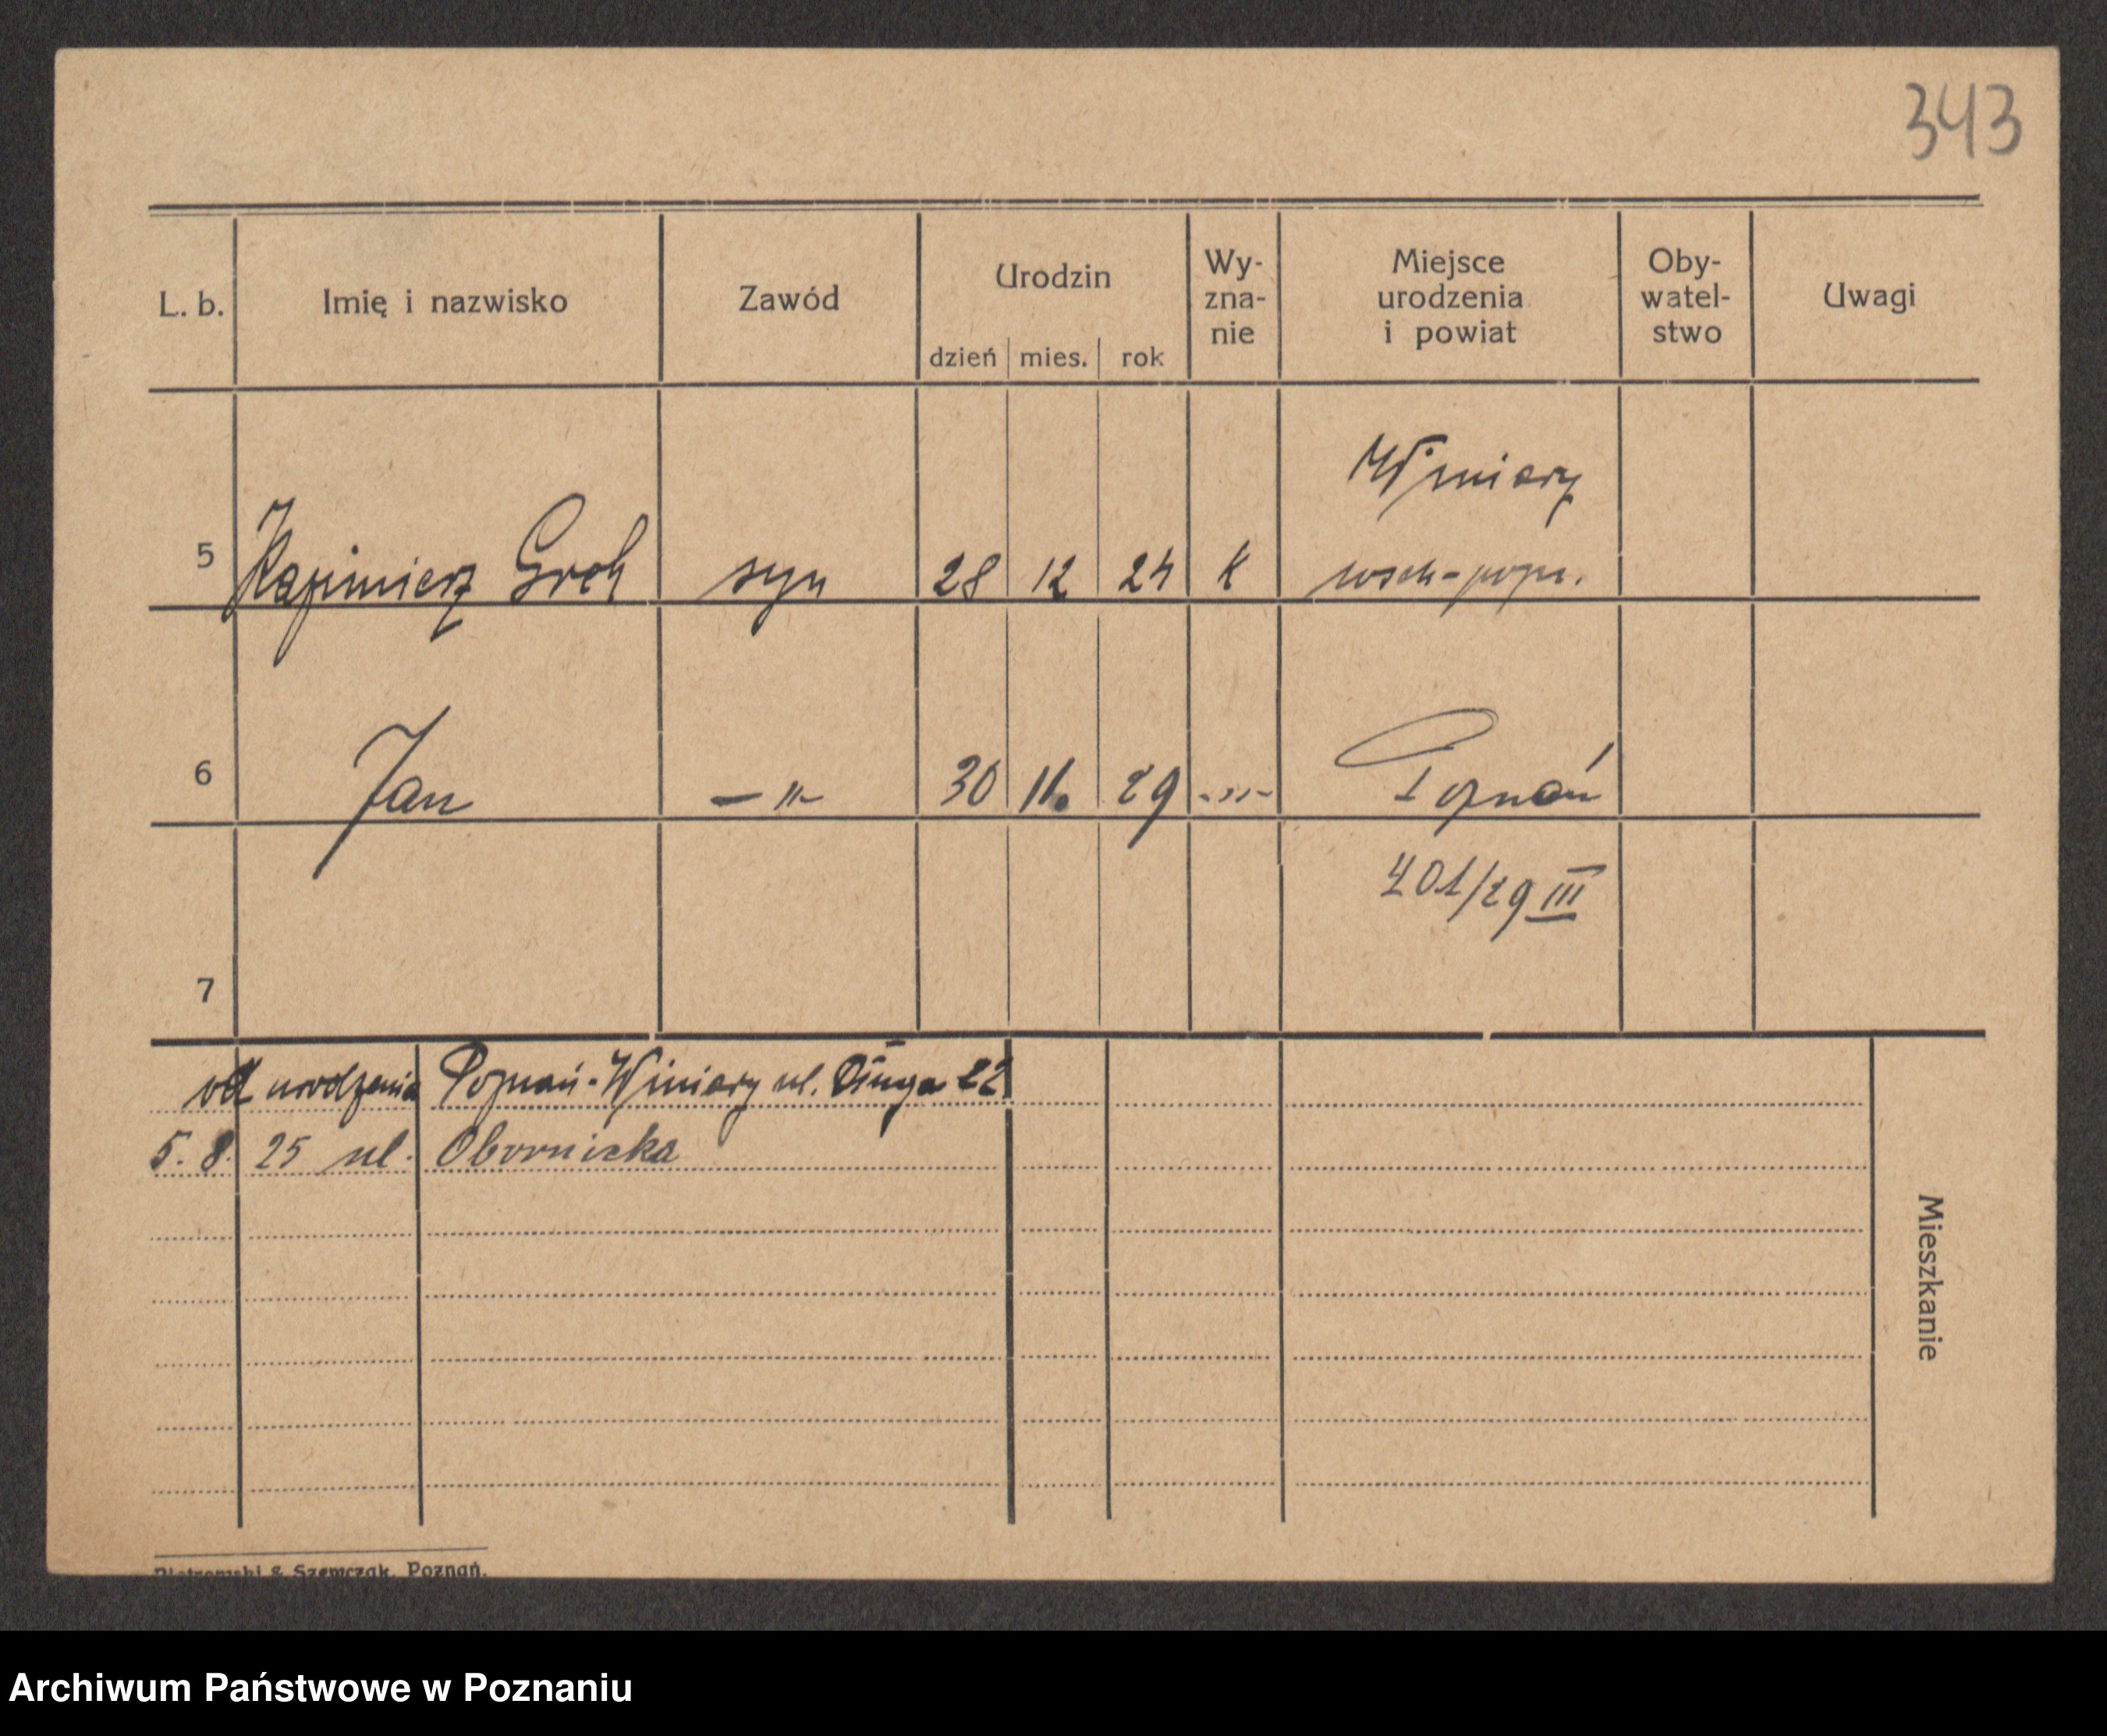 343
L. b. Imię i nazwisko Zawód Urodzin dzień mies. rok Wy-zna-nie Miejsce urodzenia i powiat Oby-watel-stwo Uwagi
Winiary
5 Kazimierz Groh syn 28 12 24 k wsch-pozn.
6 Jan — " — 30 11. 29 - " - Poznań
401/29 III
7
od urodzenia Poznań-Winiary ul. Długa 22
5. 8. 25 ul. Obornicka
Mieszkanie
Piotrowski & Szewczak, Poznań.
Archiwum Państwowe w Poznaniu